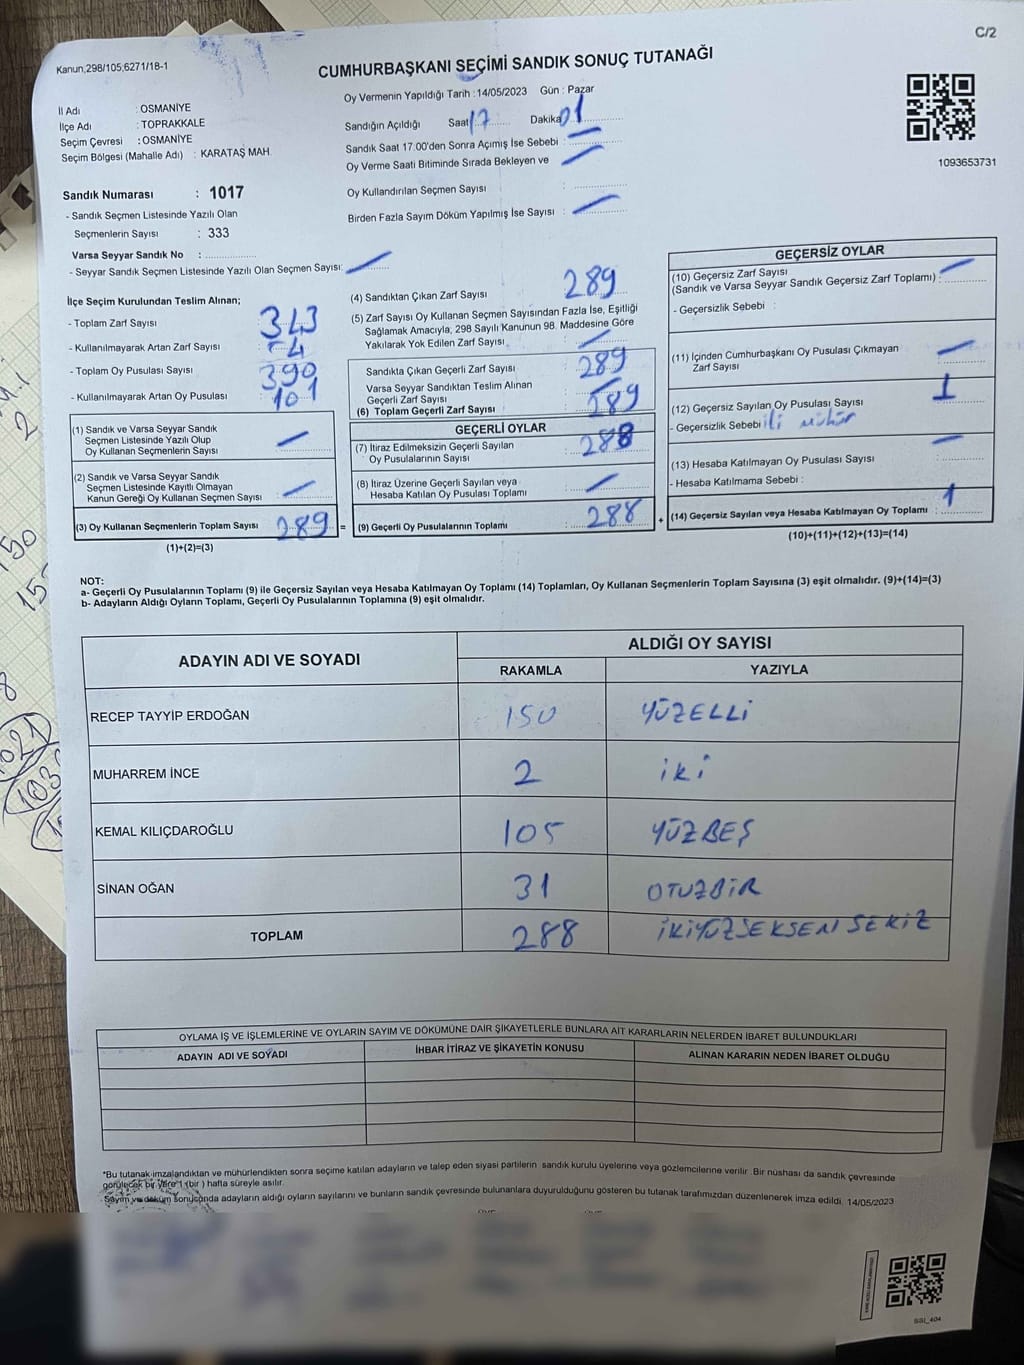 C/2
Kanun,298/105,6271/18-1
CUMHURBAŞKANI SEÇİMİ SANDIK SONUÇ TUTANAĞI
Oy Vermenin Yapıldığı Tarih : 14/05/2023 Gün : Pazar
İl Adı : OSMANİYE
İlçe Adı : TOPRAKKALE
Seçim Çevresi : OSMANİYE
Seçim Bölgesi (Mahalle Adı) : KARATAŞ MAH.
Sandık Numarası : 1017
- Sandık Seçmen Listesinde Yazılı Olan
Seçmenlerin Sayısı : 333
Varsa Seyyar Sandık No :
- Seyyar Sandık Seçmen Listesinde Yazılı Olan Seçmen Sayısı:
Sandığın Açıldığı Saat 17 Dakika 01
Sandık Saat 17:00'den Sonra Açımış İse Sebebi :
Oy Verme Saati Bitiminde Sırada Bekleyen ve
Oy Kullandırılan Seçmen Sayısı :
Birden Fazla Sayım Döküm Yapılmış İse Sayısı :
1093653731
İlçe Seçim Kurulundan Teslim Alınan;
- Toplam Zarf Sayısı
- Kullanılmayarak Artan Zarf Sayısı
- Toplam Oy Pusulası Sayısı 390
- Kullanılmayarak Artan Oy Pusulası 101
(1) Sandık ve Varsa Seyyar Sandık
Seçmen Listesinde Yazılı Olup
Oy Kullanan Seçmenlerin Sayısı
(2) Sandık ve Varsa Seyyar Sandık
Seçmen Listesinde Kayıtlı Olmayan
Kanun Gereği Oy Kullanan Seçmen Sayısı
(3) Oy Kullanan Seçmenlerin Toplam Sayısı 289 =
(1)+(2)=(3)
(4) Sandıktan Çıkan Zarf Sayısı 289
(5) Zarf Sayısı Oy Kullanan Seçmen Sayısından Fazla İse, Eşitliği
Sağlamak Amacıyla, 298 Sayılı Kanunun 98. Maddesine Göre
Yakılarak Yok Edilen Zarf Sayısı
Sandıkla Çıkan Geçerli Zarf Sayısı 289
Varsa Seyyar Sandıktan Teslim Alınan
Geçerli Zarf Sayısı
(6) Toplam Geçerli Zarf Sayısı 289
GEÇERLİ OYLAR
(7) İtiraz Edilmeksizin Geçerli Sayılan
Oy Pusulalarının Sayısı 288
(8) İtiraz Üzerine Geçerli Sayılan veya
Hesaba Katılan Oy Pusulası Toplamı
(9) Geçerli Oy Pusulalarının Toplamı 288 +
GEÇERSİZ OYLAR
(10) Geçersiz Zarf Sayısı
(Sandık ve Varsa Seyyar Sandık Geçersiz Zarf Toplamı) :
- Geçersizlik Sebebi :
(11) İçinden Cumhurbaşkanı Oy Pusulası Çıkmayan
Zarf Sayısı
(12) Geçersiz Sayılan Oy Pusulası Sayısı 1
- Geçersizlik Sebebi iki mühür
(13) Hesaba Katılmayan Oy Pusulası Sayısı
- Hesaba Katılmama Sebebi :
(14) Geçersiz Sayılan veya Hesaba Katılmayan Oy Toplamı 1
(10)+(11)+(12)+(13)=(14)
NOT:
a- Geçerli Oy Pusulalarının Toplamı (9) ile Geçersiz Sayılan veya Hesaba Katılmayan Oy Toplamı (14) Toplamları, Oy Kullanan Seçmenlerin Toplam Sayısına (3) eşit olmalıdır. (9)+(14)=(3)
b- Adayların Aldığı Oyların Toplamı, Geçerli Oy Pusulalarının Toplamına (9) eşit olmalıdır.
ADAYIN ADI VE SOYADI ALDIĞI OY SAYISI
RAKAMLA YAZIYLA
RECEP TAYYİP ERDOĞAN 150 YÜZELLİ
MUHARREM İNCE 2 iki
KEMAL KILIÇDAROĞLU 105 YÜZBEŞ
SİNAN OĞAN 31 OTUZBİR
TOPLAM 288 İKİYÜZSEKSEN SEKİZ
OYLAMA İŞ VE İŞLEMLERİNE VE OYLARIN SAYIM VE DÖKÜMÜNE DAİR ŞİKAYETLERLE BUNLARA AİT KARARLARIN NELERDEN İBARET BULUNDUKLARI
ADAYIN ADI VE SOYADI İHBAR İTİRAZ VE ŞİKAYETİN KONUSU ALINAN KARARIN NEDEN İBARET OLDUĞU
*Bu tutanak imzalandıktan ve mühürlendikten sonra seçime katılan adayların ve talep eden siyasi partilerin sandık kurulu üyelerine veya gözlemcilerine verilir. Bir nüshası da sandık çevresinde
görülecek bir yere 1 (bir) hafta süreyle asılır.
Sayım ve döküm sonucunda adayların aldığı oyların sayılarını ve bunların sandık çevresinde bulunanlara duyurulduğunu gösteren bu tutanak tarafımızdan düzenlenerek imza edildi. 14/05/2023
SSI_404